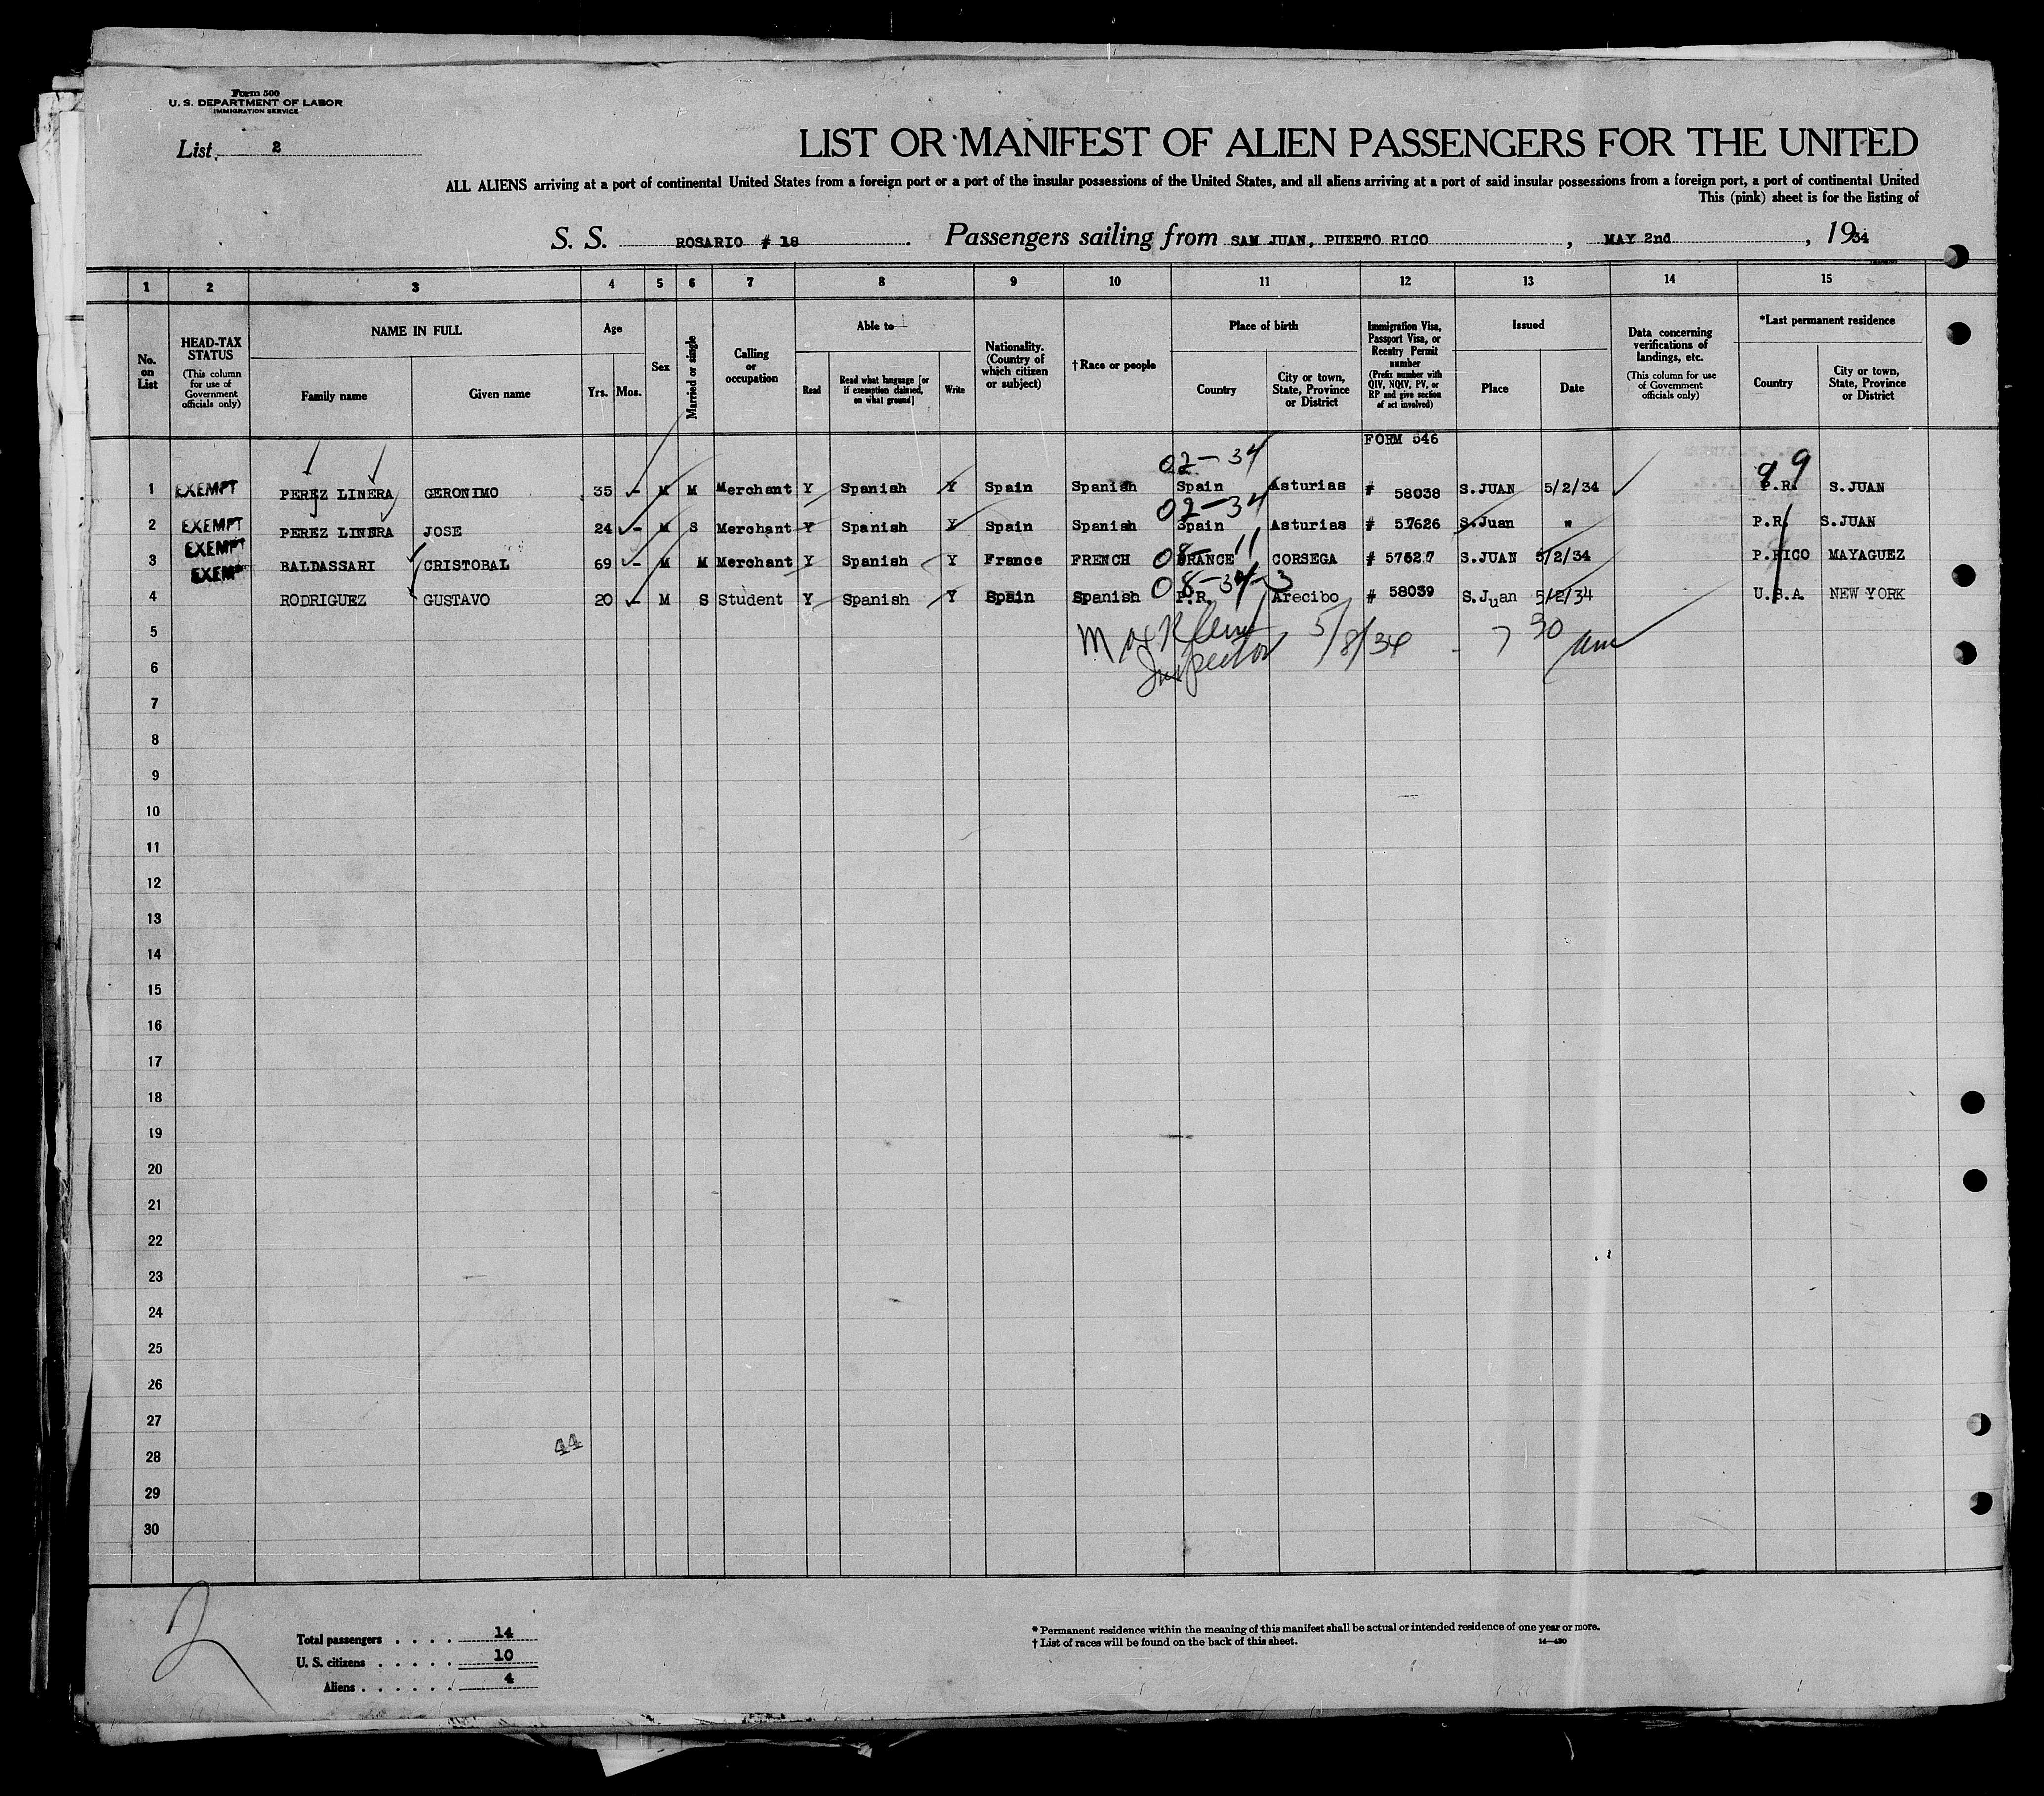 Form 500
U. S. DEPARTMENT OF LABOR
IMMIGRATION SERVICE
List 2
LIST OR MANIFEST OF ALIEN PASSENGERS FOR THE UNITED
ALL ALIENS arriving at a port of continental United States from a foreign port or a port of the insular possessions of the United States, and all aliens arriving at a port of said insular possessions from a foreign port, a port of continental United
This (pink) sheet is for the listing of
S. S. ROSARIO # 18 . Passengers sailing from SAM JUAN, PUERTO RICO , MAY 2nd , 1934
1 2 3 4 5 6 7 8 9 10 11 12 13 14 15
No. on List
HEAD-TAX STATUS (This column for use of Government officials only)
NAME IN FULL
Family name
Given name
Age
Yrs. Mos.
Sex
Married or single
Calling or occupation
Able to—
Read
Read what language [or if exemption claimed, on what ground]
Write
Nationality. (Country of which citizen or subject)
† Race or people
Place of birth
Country
City or town, State, Province or District
Immigration Visa, Passport Visa, or Reentry Permit number (Prefix number with QIV, NQIV, PV, or RP and give section of act involved)
Issued
Place
Date
Data concerning verifications of landings, etc. (This column for use of Government officials only)
*Last permanent residence
Country
City or town, State, Province or District
FORM 546
02-34 99
1 EXEMPT PEREZ LINERA GERONIMO 35 - M M Merchant Y Spanish Y Spain Spanish Spain Asturias # 58038 S.JUAN 5/2/34 P.R. S.JUAN
02-34
2 EXEMPT PEREZ LINERA JOSE 24 - M S Merchant Y Spanish Y Spain Spanish Spain Asturias # 57626 S.Juan " P.R. S.JUAN
08- 11
3 EXEMPT BALDASSARI CRISTOBAL 69 - M M Merchant Y Spanish Y France FRENCH FRANCE CORSEGA # 57627 S.JUAN 5/2/34 P.RICO MAYAGUEZ
08-34-3
4 EXEMPT RODRIGUEZ GUSTAVO 20 - M S Student Y Spanish Y Spain Spanish P.R. Arecibo # 58039 S.Juan 5/2/34 U.S.A. NEW YORK
5 5/8/34 - 7 30 am
Inspector
6
7
8
9
10
11
12
13
14
15
16
17
18
19
20
21
22
23
24
25
26
27
44
28
29
30
2
Total passengers . . . . 14
U. S. citizens . . . . . 10
Aliens . . . . . . 4
* Permanent residence within the meaning of this manifest shall be actual or intended residence of one year or more.
† List of races will be found on the back of this sheet. 14—430